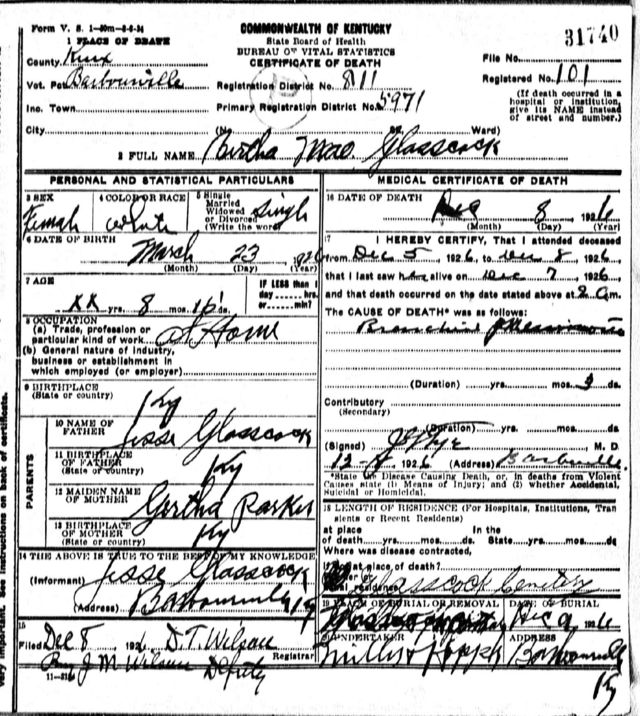 Form V. S. 1-50m-8-6-24
COMMONWEALTH OF KENTUCKY
31740
1 PLACE OF DEATH
State Board of Health
BUREAU OF VITAL STATISTICS
CERTIFICATE OF DEATH
County Knox
File No.
Vot. Pct Barbourville
Registration District No. 811
Registered No. 101
Inc. Town
Primary Registration District No. 5971
(If death occurred in a hospital or institution, give its NAME instead of street and number.)
City (No. St. Ward)
2 FULL NAME Birtha Mae Glasscock
PERSONAL AND STATISTICAL PARTICULARS
3 SEX Female
4 COLOR OR RACE white
5 Single Married Widowed or Divorced (Write the word) Single
6 DATE OF BIRTH
March 23 1926
(Month) (Day) (Year)
7 AGE
IF LESS than 1 day ----- hrs. or ----- min?
XX yrs. 8 mos. 15 ds.
8 OCCUPATION
(a) Trade, profession or particular kind of work At Home
(b) General nature of industry, business or establishment in which employed (or employer)
9 BIRTHPLACE
(State or country) Ky
PARENTS
10 NAME OF FATHER Jesse Glasscock
11 BIRTHPLACE OF FATHER (State or country) Ky
12 MAIDEN NAME OF MOTHER Gertha Parker
13 BIRTHPLACE OF MOTHER (State or country) Ky
14 THE ABOVE IS TRUE TO THE BEST OF MY KNOWLEDGE
(Informant) Jesse Glasscock
(Address) Barbourville Ky
15
Filed Dec 8 1926 D.T. Wilson
Registrar
By J M Wilson Deputy
MEDICAL CERTIFICATE OF DEATH
16 DATE OF DEATH
Dec 8 1926
(Month) (Day) (Year)
17 I HEREBY CERTIFY, That I attended deceased
from Dec 5 1926, to Dec 8 1926
that I last saw her alive on Dec 7 1926
and that death occurred on the date stated above at 2 a.m.
The CAUSE OF DEATH* was as follows:
Bronchial Pneumonia
(Duration) yrs. mos. 3 ds.
Contributory
(Secondary)
(Duration) yrs. mos. ds.
(Signed) M. D.
12 8 1926 (Address) Barbourville
*State the Disease Causing Death, or, in deaths from Violent Causes state (1) Means of Injury; and (2) whether Accidental, Suicidal or Homicidal.
18 LENGTH OF RESIDENCE (For Hospitals, Institutions, Transients or Recent Residents)
At place of death yrs. mos. ds. In the State yrs. mos. ds.
Where was disease contracted,
if not at place of death?
Glasscock Cemetery
19 PLACE OF BURIAL OR REMOVAL
DATE OF BURIAL
Dec 9 1926
20 UNDERTAKER
ADDRESS
Barbourville
Ky
very important. See instructions on back of certificate.